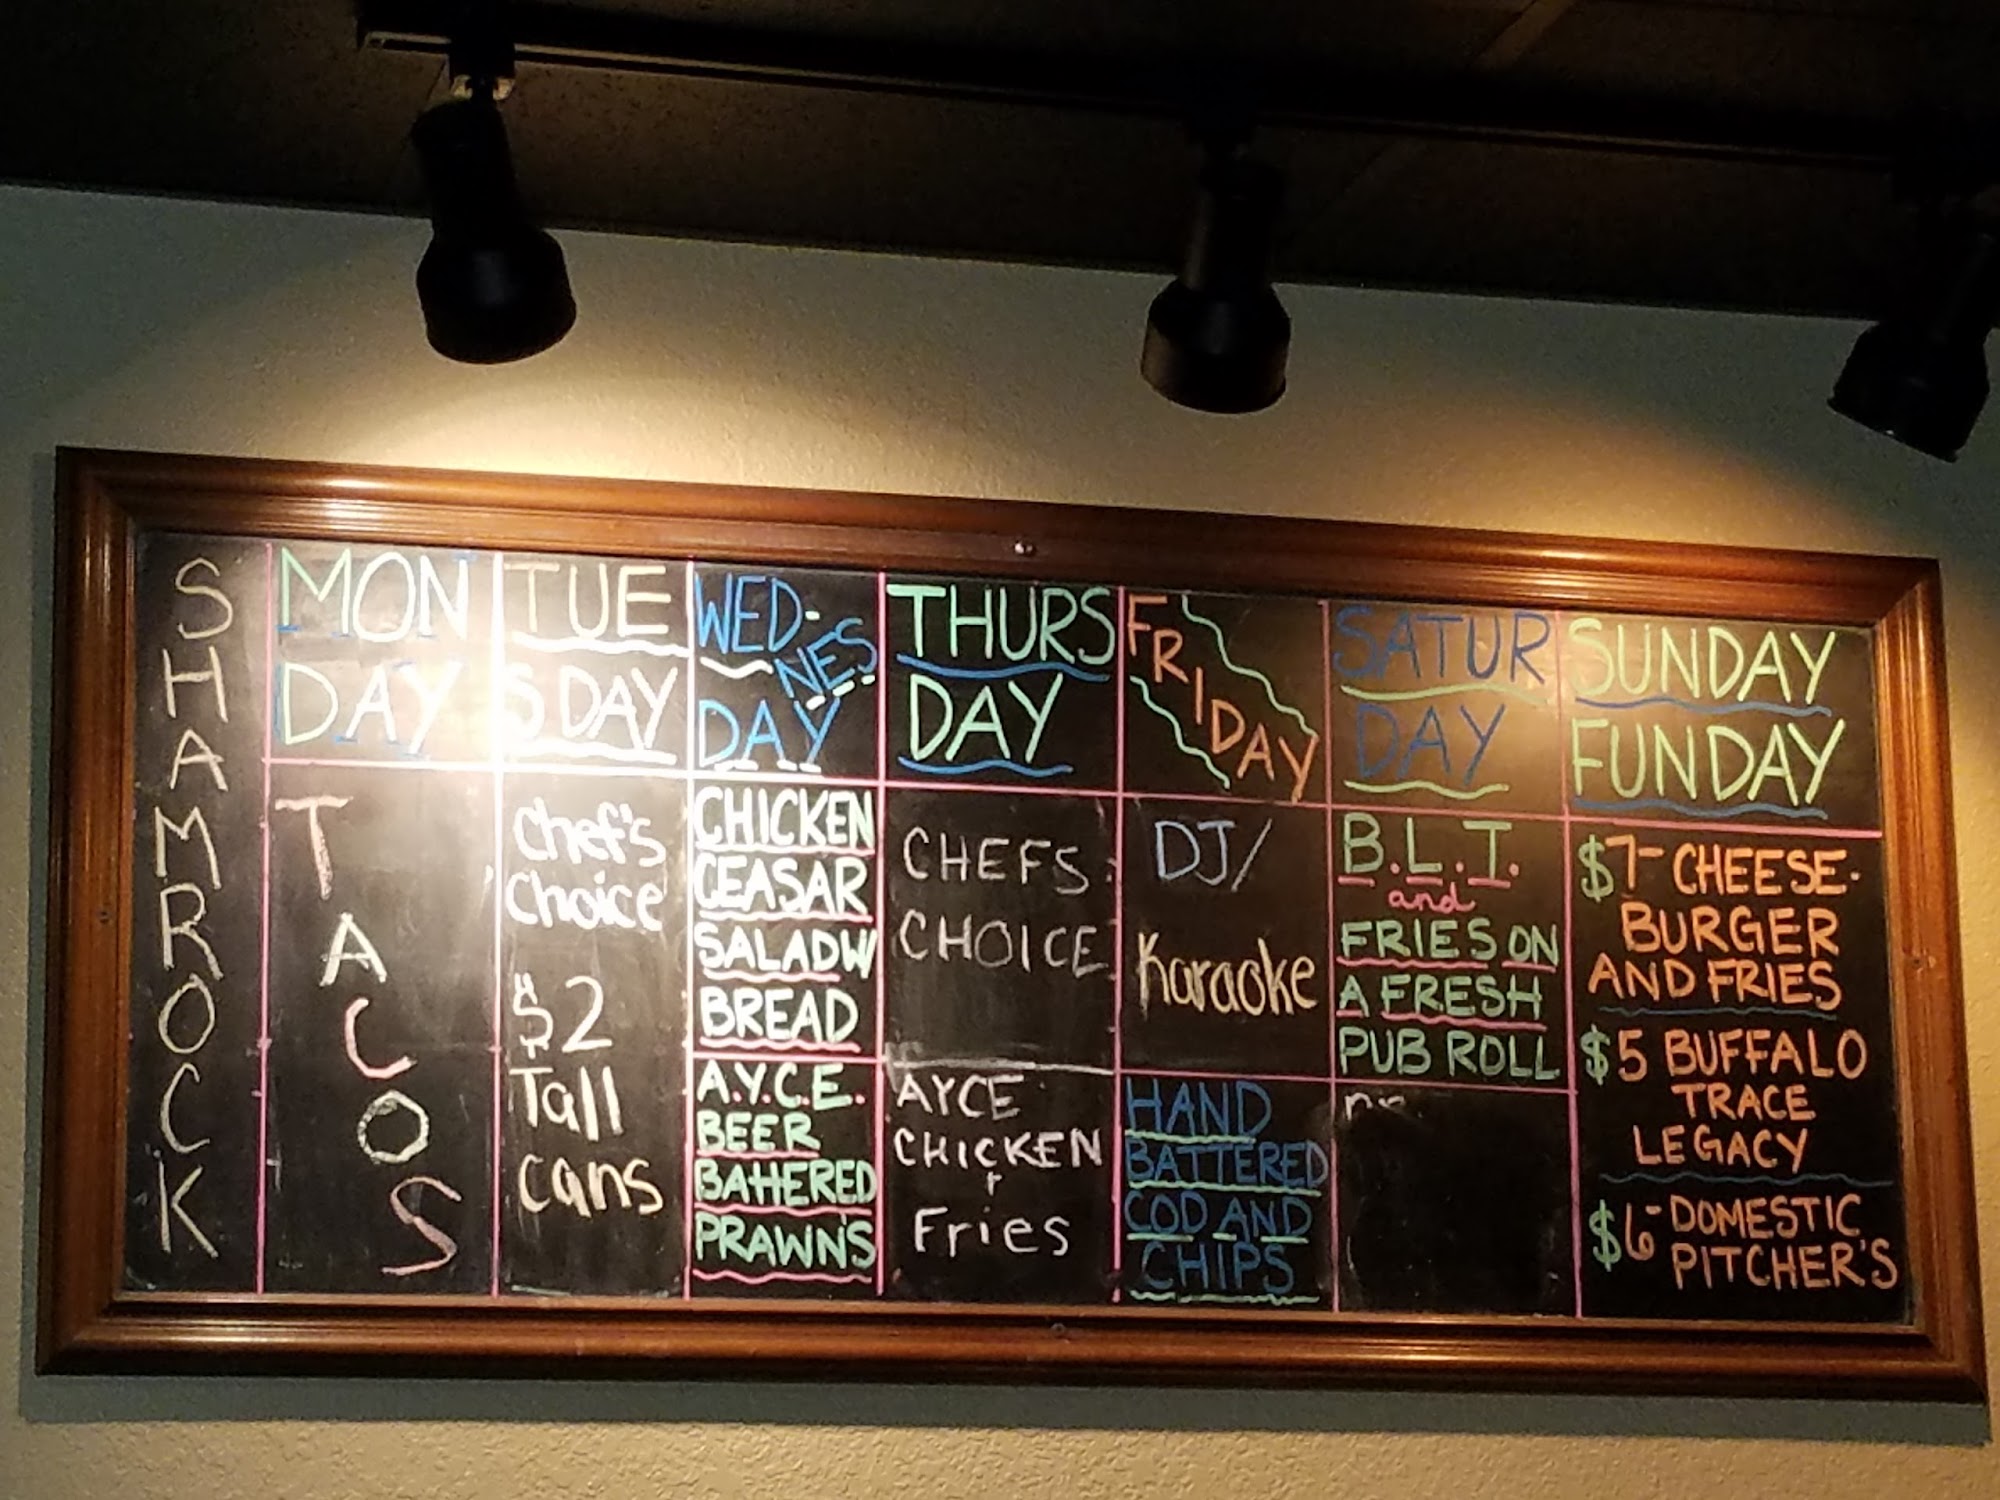 SHAMROCK
MON
DAY
TACOS
TUE
SDAY
Chef's
Choice
$2
Tall
cans
WED-
NES
DAY
CHICKEN
CEASAR
SALAD W/
BREAD
A.Y.C.E.
BEER
BATTERED
PRAWN'S
THURS
DAY
CHEFS
CHOICE
AYCE
CHICKEN
+
Fries
FRIDAY
DJ/
Karaoke
HAND
BATTERED
COD AND
CHIPS
SATUR
DAY
B.L.T.
and
FRIES ON
A FRESH
PUB ROLL
SUNDAY
FUNDAY
$7- CHEESE-
BURGER
AND FRIES
$5 BUFFALO
TRACE
LEGACY
$6- DOMESTIC
PITCHER'S